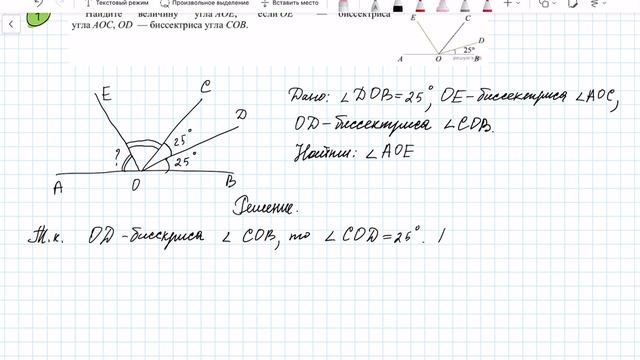 Текстовый режим Произвольное выделение Вставить место
1 Найдите величину угла AOE, если OE — биссектриса
угла AOC, OD — биссектриса угла COB.
E C D 25° A O B
E C D
? 25° 25°
A O B
Дано: ∠DOB=25°, OE-биссектриса ∠AOC,
OD-биссектриса ∠COB.
Найти: ∠AOE
Решение.
Т.к. OD-бисскриса ∠COB, то ∠COD=25°.